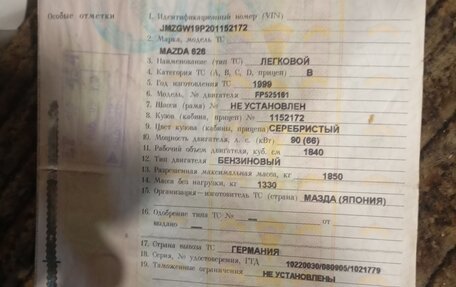 Особые отметки
1. Идентификационный номер (VIN)
JMZGW19P201152172
2. Марка, модель ТС
MAZDA 626
3. Наименование (тип ТС) ЛЕГКОВОЙ
4. Категория ТС (А, В, С, D, прицеп) B
5. Год изготовления ТС 1999
6. Модель, № двигателя FP525181
7. Шасси (рама) № НЕ УСТАНОВЛЕН
8. Кузов (кабина, прицеп) № 1152172
9. Цвет кузова (кабины, прицепа) СЕРЕБРИСТЫЙ
10. Мощность двигателя, л. с. (кВт) 90 (66)
11. Рабочий объем двигателя, куб. см 1840
12. Тип двигателя БЕНЗИНОВЫЙ
13. Разрешенная максимальная масса, кг 1850
14. Масса без нагрузки, кг 1330
15. Организация—изготовитель ТС (страна) МАЗДА (ЯПОНИЯ)
16. Одобрение типа ТС № — от
выдано —
17. Страна вывоза ТС ГЕРМАНИЯ
18. Серия, № удостоверения, ГТД 10220030/080905/1021779
19. Таможенные ограничения НЕ УСТАНОВЛЕНЫ